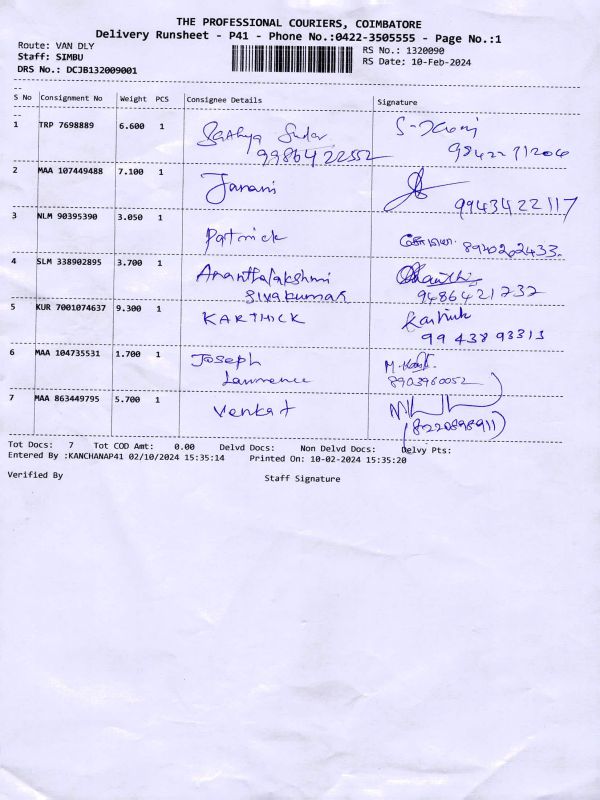 THE PROFESSIONAL COURIERS, COIMBATORE
Delivery Runsheet - P41 - Phone No.:0422-3505555 - Page No.:1
Route: VAN DLY
RS No.: 1320090
Staff: SIMBU
RS Date: 10-Feb-2024
DRS No.: DCJB132009001
S No Consignment No Weight PCS Consignee Details Signature
1 TRP 7698889 6.600 1 Sathya Sudar
9986422552
2 MAA 107449488 7.100 1 Janani
9943422117
3 NLM 90395390 3.050 1 Patrick 8940202433.
4 SLM 338902895 3.700 1 Ananthalakshmi
Sivakumar 9486421737
5 KUR 7001074637 9.300 1 KARTHICK Karthick
99 438 93313
6 MAA 104735531 1.700 1 Joseph
Lawrence 8903960052
7 MAA 863449795 5.700 1 Venkat
(8220898911)
Tot Docs: 7 Tot COD Amt: 0.00 Delvd Docs: Non Delvd Docs: Delvy Pts:
Entered By :KANCHANAP41 02/10/2024 15:35:14 Printed On: 10-02-2024 15:35:20
Verified By Staff Signature